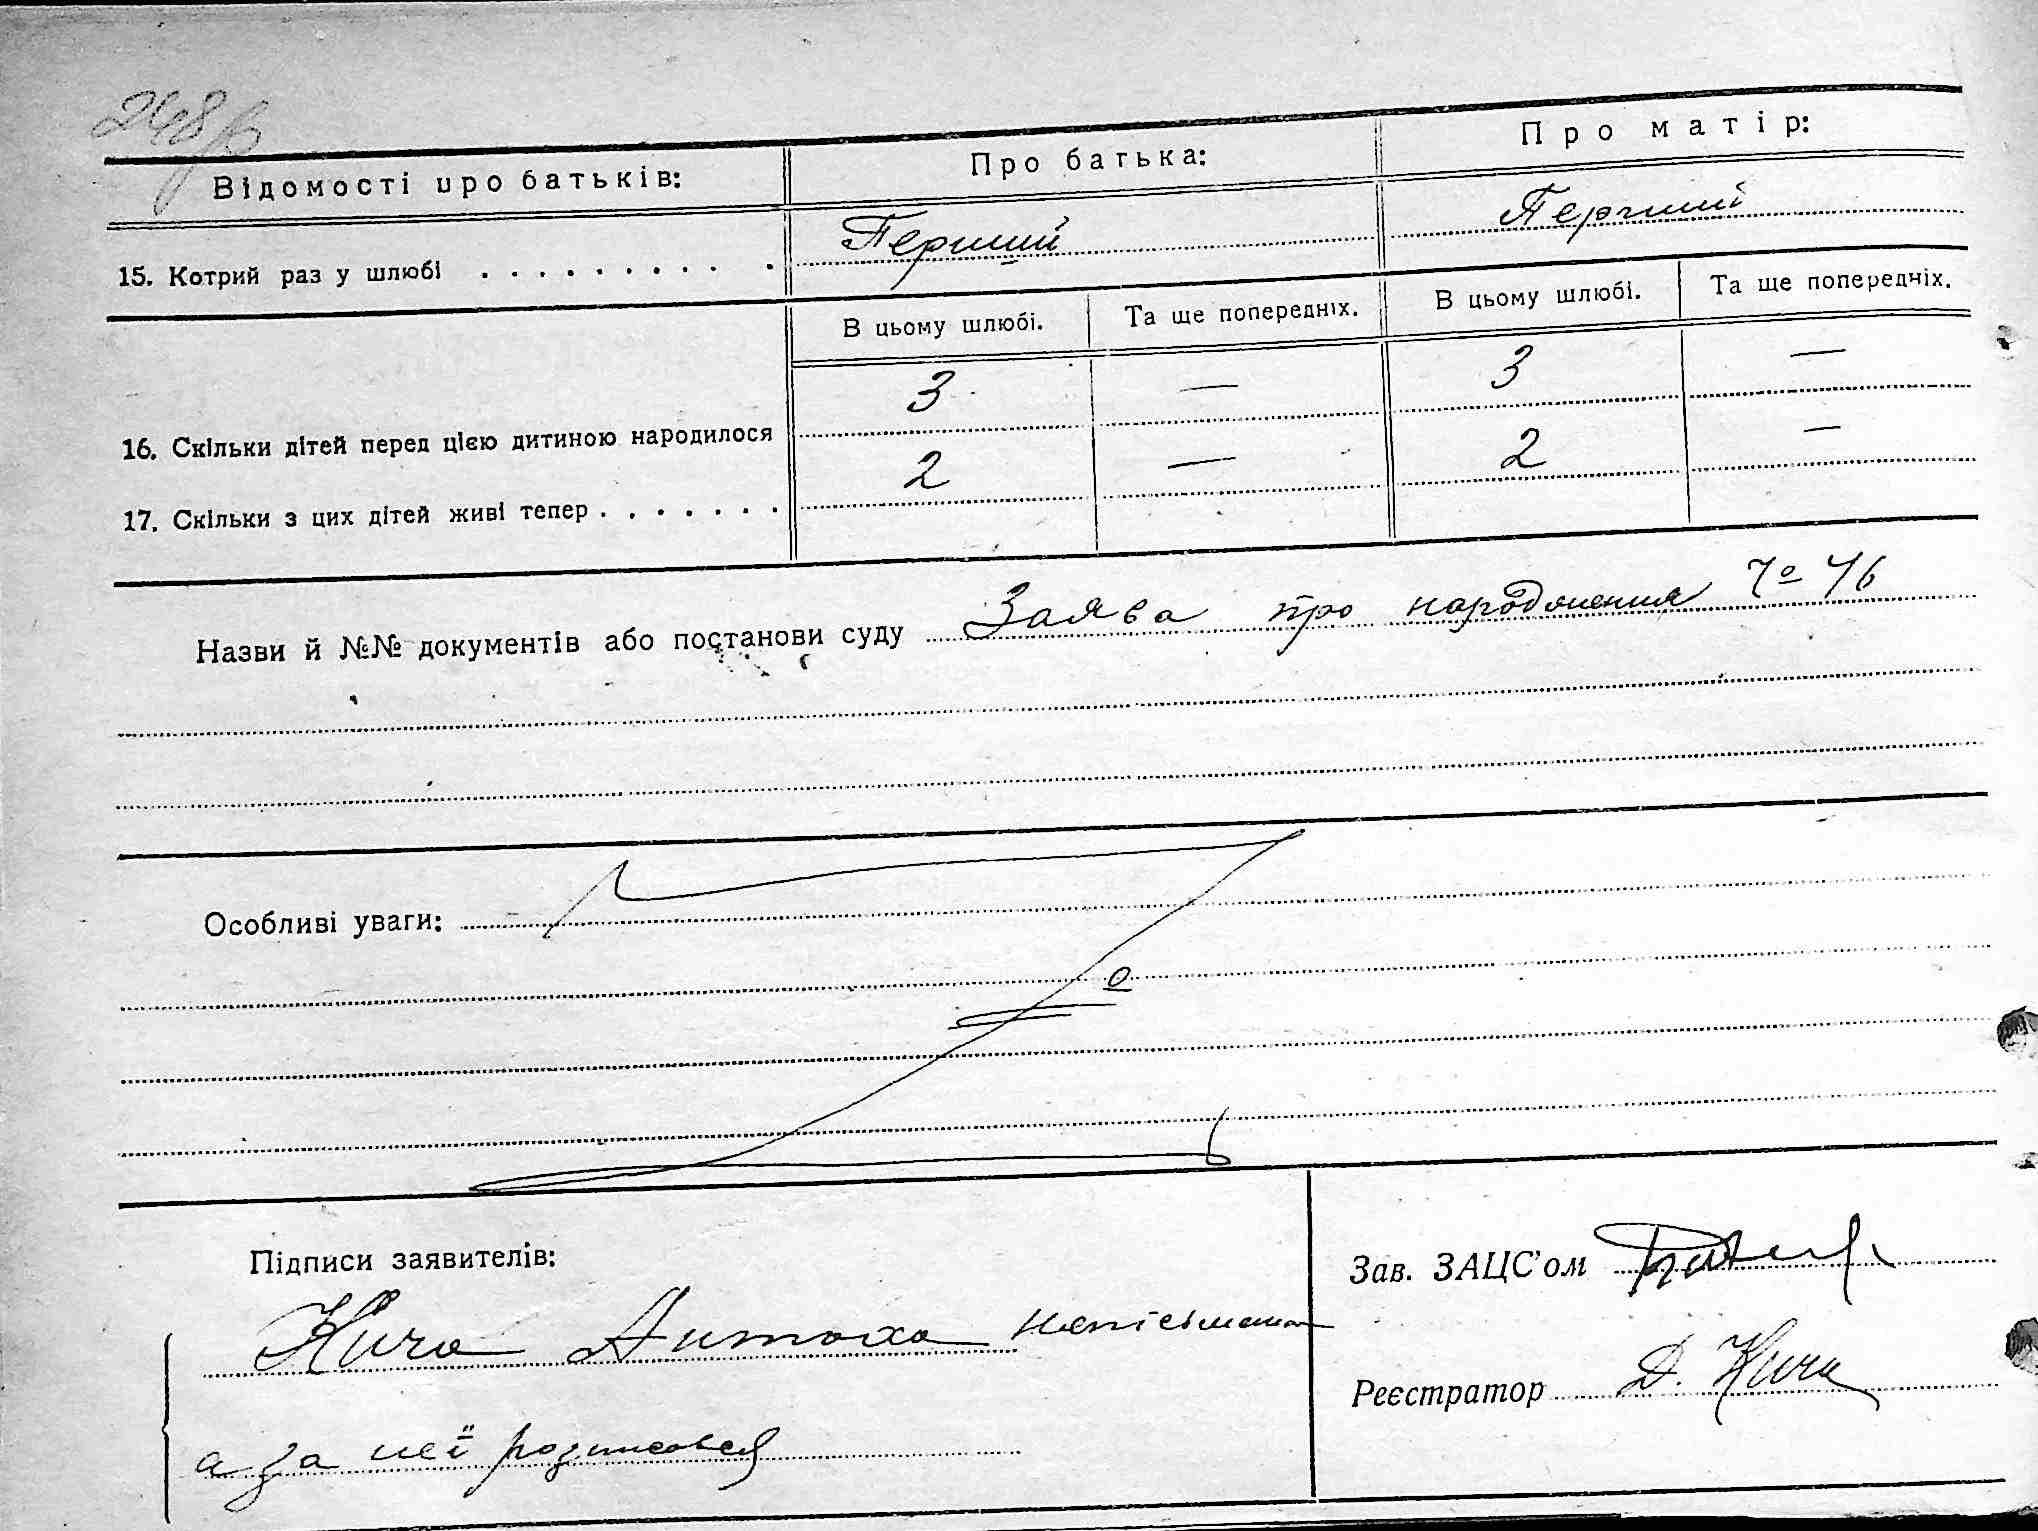 Відомості про батьків: Про батька: Про матір:
15. Котрий раз у шлюбі . . . . . . . . . . . Перший Перший
В цьому шлюбі. Та ще попередніх. В цьому шлюбі. Та ще попередніх.
16. Скільки дітей перед цією дитиною народилося 3 — 3 —
17. Скільки з цих дітей живі тепер . . . . . . . 2 — 2 —
Назви й №№ документів або постанови суду Заява про народження
Особливі уваги:
Підписи заявителів:
Зав. ЗАЦС'ом
Кича неписьмена
Реєстратор Д. Кича
а за неї розписався